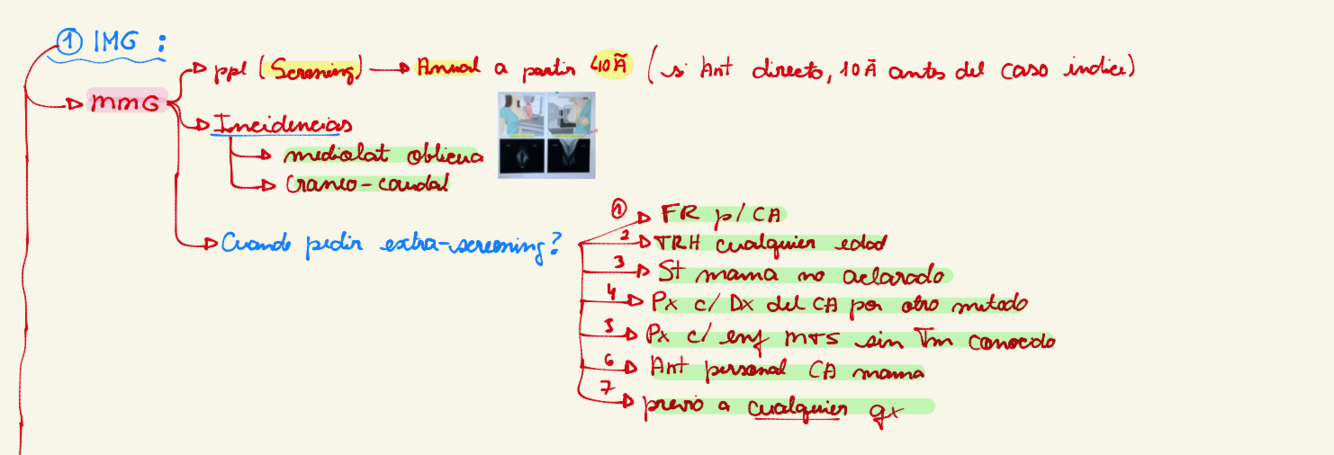 ① IMG :
MMG
ppl (Screning) → Anual a partir 40 Ã (si Ant directo, 10 Ã antes del caso indice)
Incidencias
mediolat oblicua
Craneo-caudal
Cuando pedir extra-screening?
① FR p/ CA
2 TRH cualquier edad
3 St mama no aclarado
4 Px c/ Dx del CA por otro metodo
5 Px c/ enf MTS sin Tm conocido
6 Ant personal CA mama
7 previo a cualquier qx